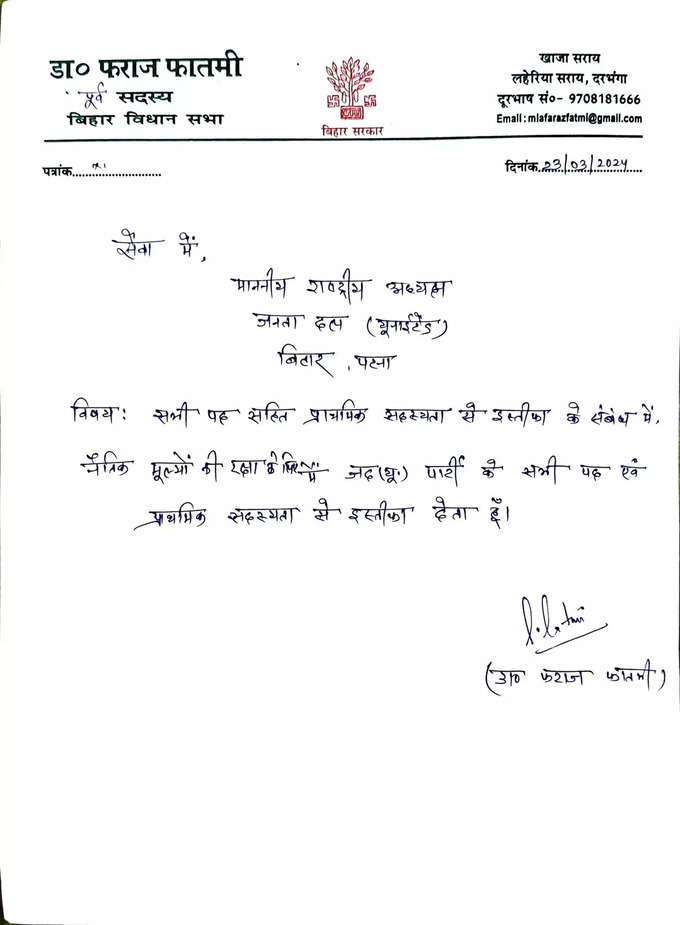 डा० फराज फातमी
पूर्व सदस्य
बिहार विधान सभा
बिहार सरकार
खाजा सराय
लहेरिया सराय, दरभंगा
दूरभाष सं०- 9708181666
Email : mlafarazfatmi@gmail.com
पत्रांक...........................
दिनांक..23/03/2024......
सेवा में,
माननीय राष्ट्रीय अध्यक्ष
जनता दल (यूनाईटेड)
बिहार, पटना
विषय: सभी पद सहित प्राथमिक सदस्यता से इस्तीफा के संबंध में,
नैतिक मूल्यों की रक्षा के लिए मैं जद(यू.) पार्टी के सभी पद एवं
प्राथमिक सदस्यता से इस्तीफा देता हूँ।
(डा० फराज फातमी)